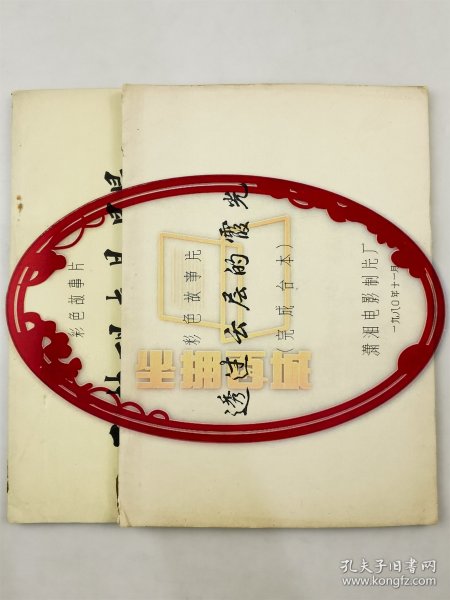 彩色故事片
彩色故事片
透过云层的霞光
(完成台本)
潇湘电影制片厂
一九八〇年十一月
孔夫子旧书网
www.kongfz.com